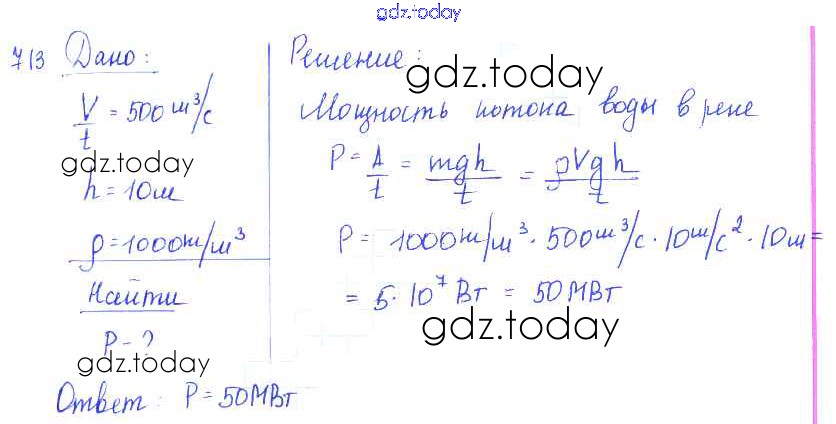 gdz.today
713 Дано:
V/t = 500 м³/с
gdz.today
h = 10м
ρ = 1000 кг/м³
Найти
P - ?
gdz.today
Решение:
gdz.today
Мощность потока воды в реке
P = A/t = mgh/t = ρVgh/t
P = 1000 кг/м³ · 500 м³/с · 10 м/с² · 10 м =
= 5 · 10⁷ Вт = 50 МВт
gdz.today
Ответ: P = 50 МВт